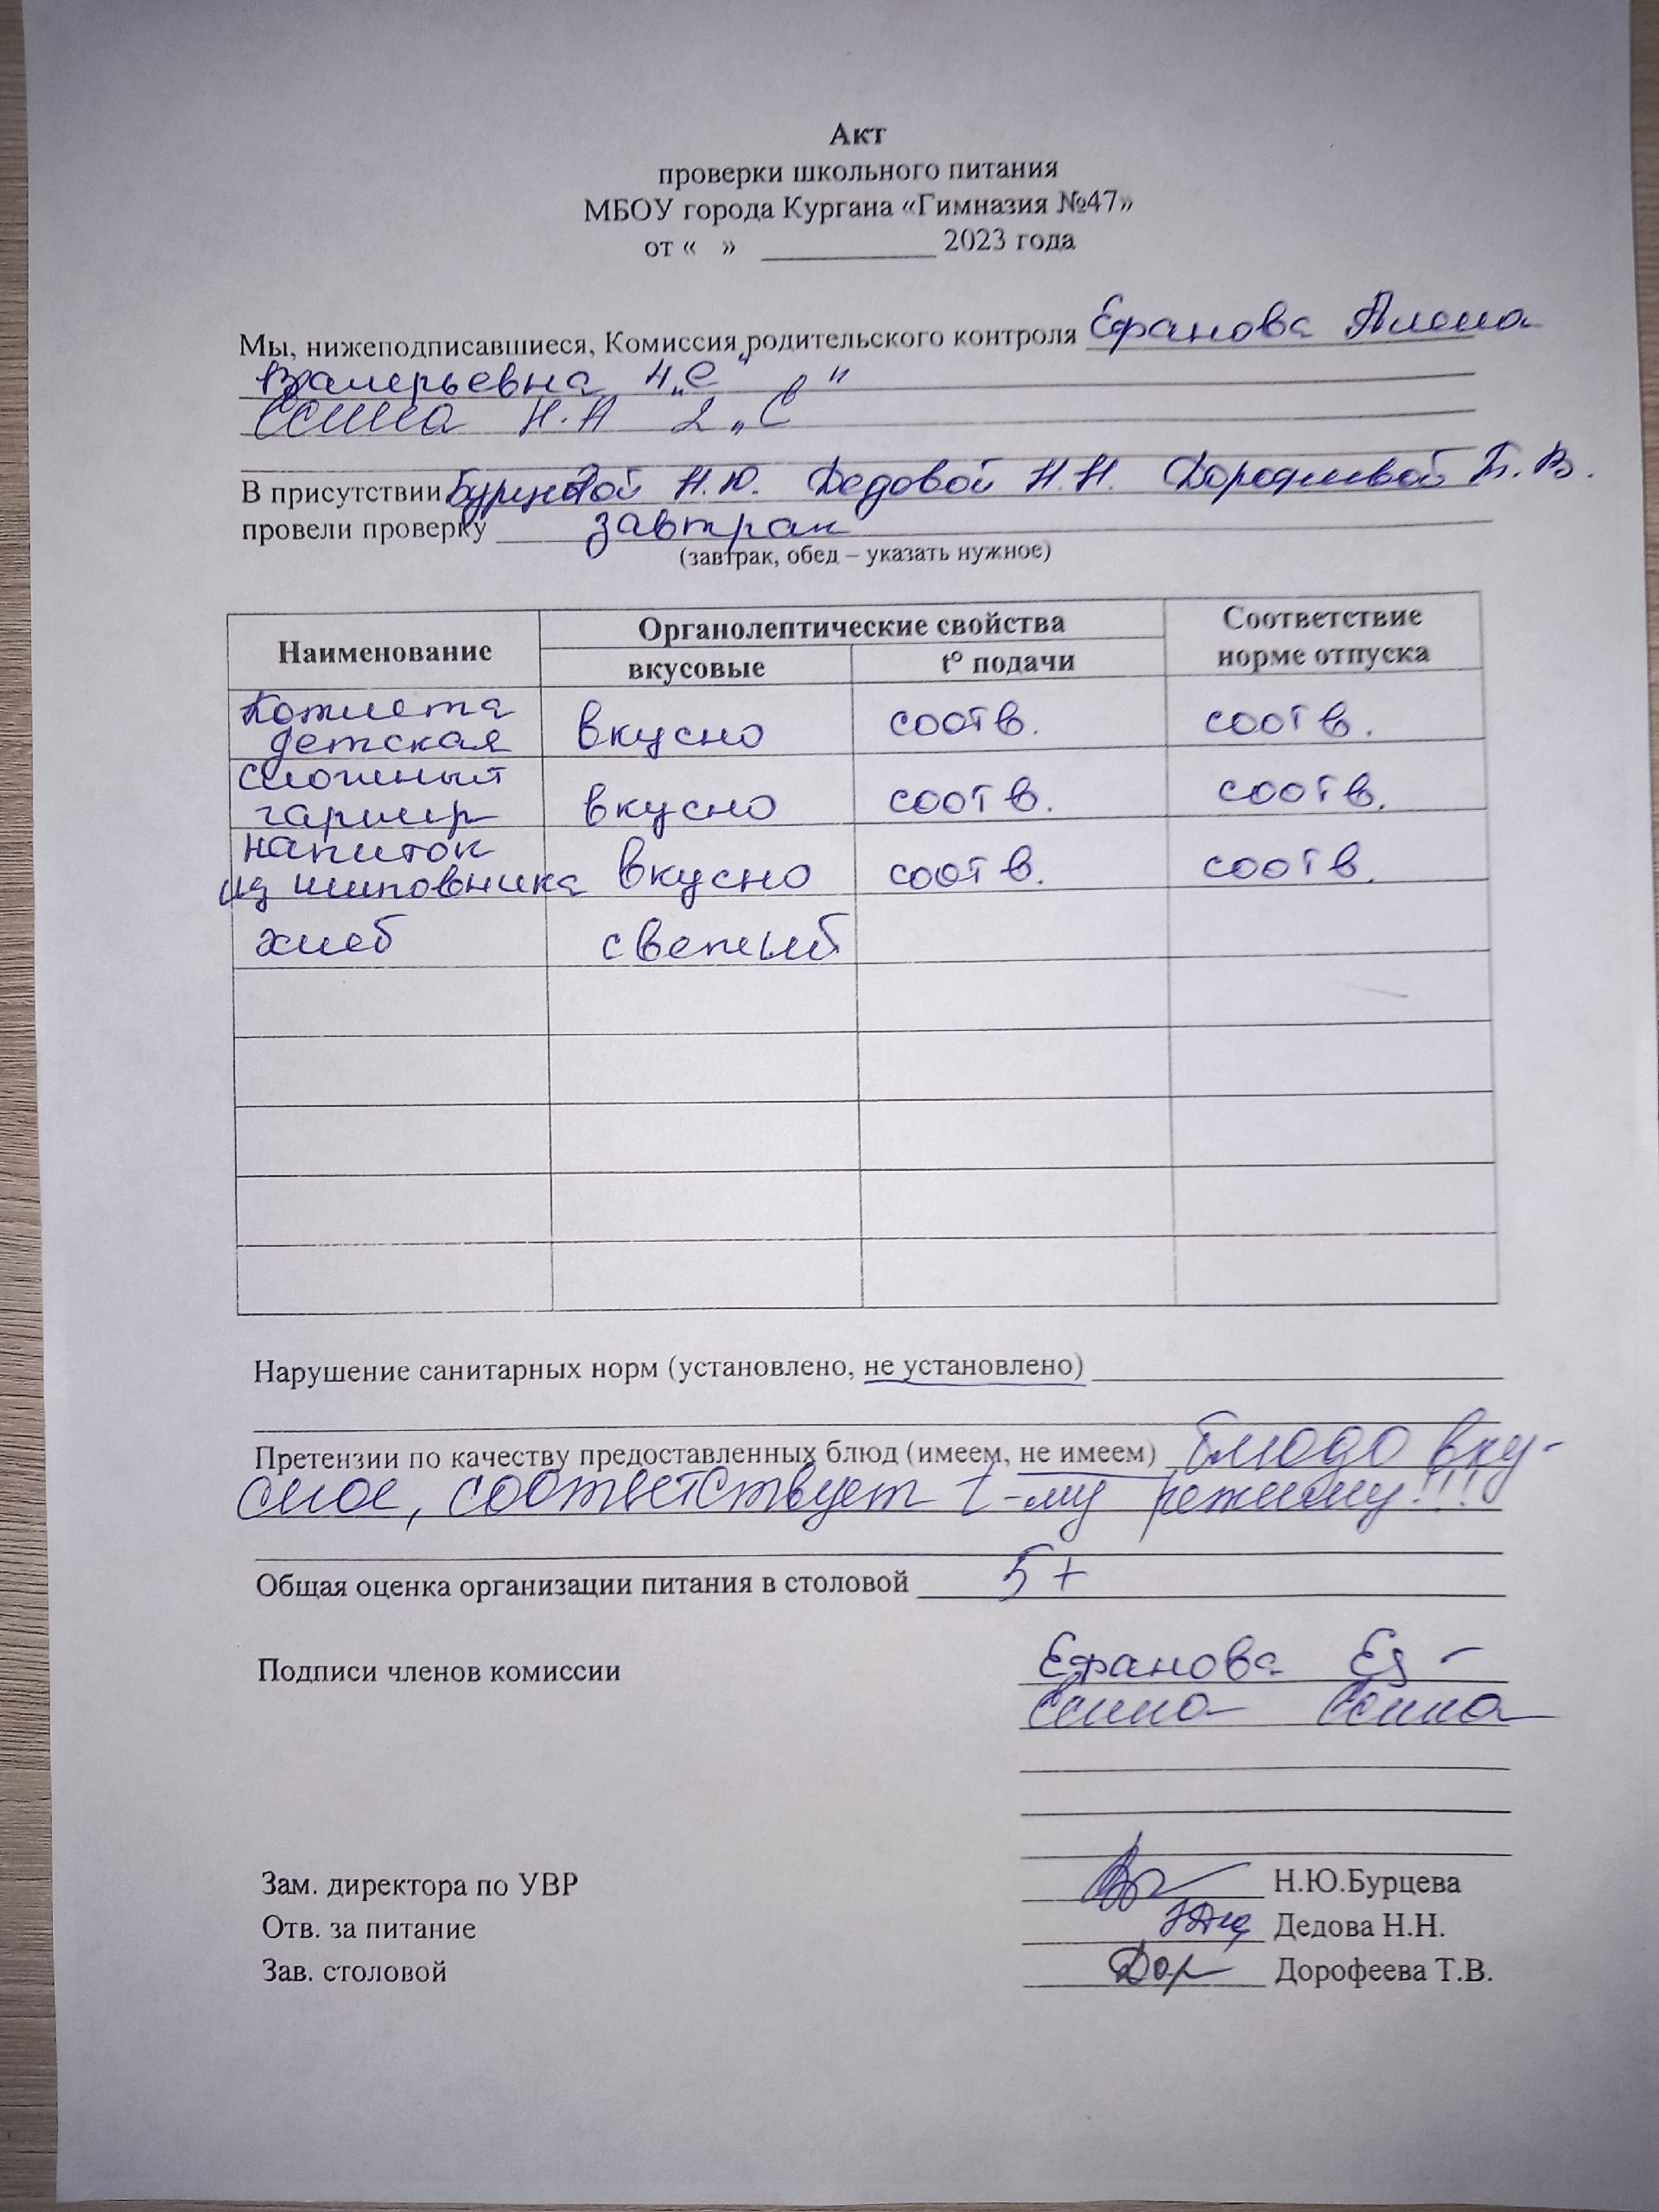 Акт
проверки школьного питания
МБОУ города Кургана «Гимназия №47»
от « » ____________ 2023 года
Мы, нижеподписавшиеся, Комиссия родительского контроля Ефанова Алена
Валерьевна 4 „С“
Н.А 2 „С“
В присутствии Бурцевой Н.Ю. Дедовой Н.Н. Дорофеевой Т.В.
провели проверку завтрак
(завтрак, обед – указать нужное)
Наименование Органолептические свойства Соответствие норме отпуска
вкусовые t° подачи
Котлета детская вкусно соотв. соотв.
сложный гарнир вкусно соотв. соотв.
напиток из шиповника вкусно соотв. соотв.
хлеб свежий
Нарушение санитарных норм (установлено, не установлено)
Претензии по качеству предоставленных блюд (имеем, не имеем) блюдо вку-
сное, соответствует t-му режиму!!!
Общая оценка организации питания в столовой 5+
Подписи членов комиссии Ефанова
Зам. директора по УВР Н.Ю.Бурцева
Отв. за питание Дедова Н.Н.
Зав. столовой Дор Дорофеева Т.В.